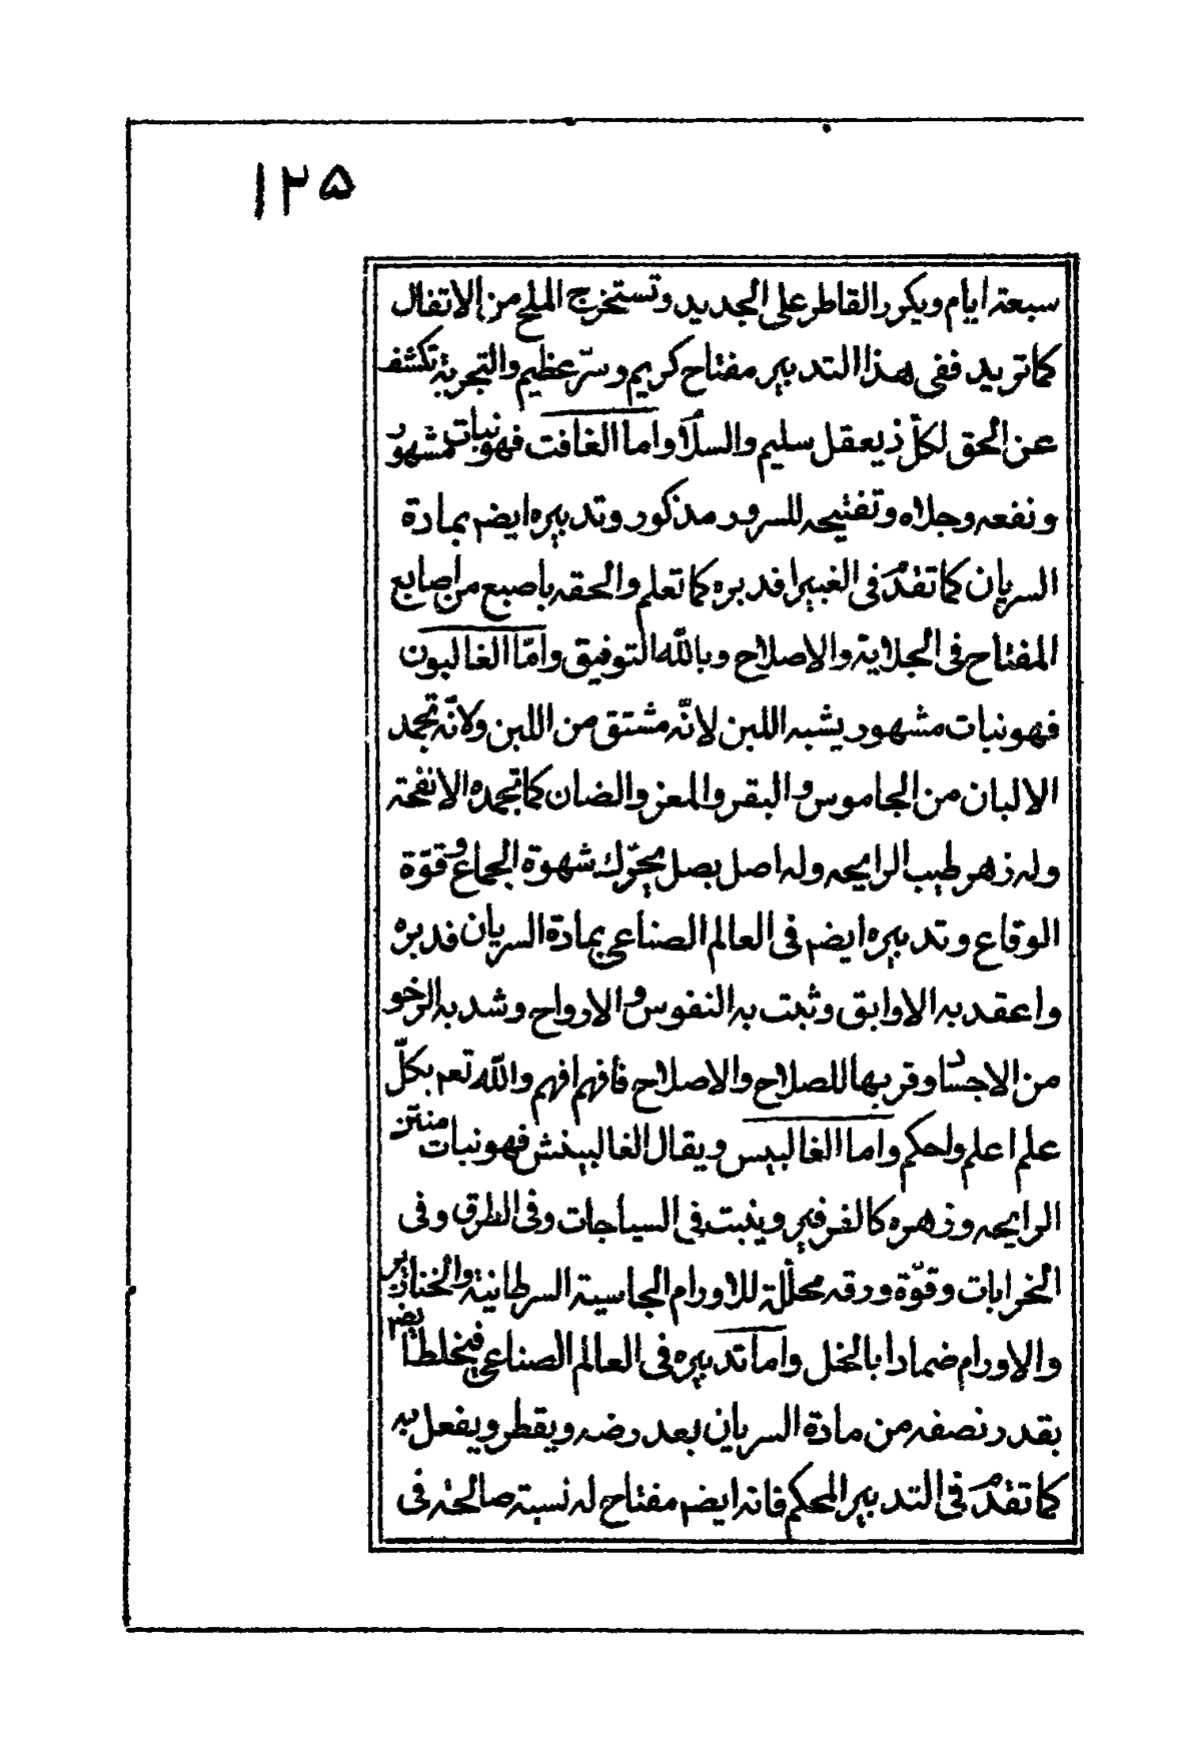 ١٢۵
سبعة ايام ويكرر القاطر على الجديد وتستخرج الملح من الاتفال
كما تريد ففى هذا التدبير مفتاح كريم وسرّ عظيم والتجربة تكشف
عن الحق لكلّ ذيعقل سليم والسلام واما الغافت فهو نبات مشهور
ونفعه وجلاه وتفتيحه للسرور مذكور وتدبيره ايضم بمادة
السريان كما تقدم فى الغبيرا فدبره كما تعلم والحقه باصبع من اصابع
المفتاح فى الجلاية والاصلاح وبالله التوفيق وامّا الغالبون
فهو نبات مشهور يشبه اللبن لانّه مشتق من اللبن ولانّه تجمد
الالبان من الجاموس والبقر والمعز والضان كما تجمده الانفحة
وله زهر طيب الرايحه وله اصل بصل يحرّك شهوة الجماع وقوّة
الوقاع وتدبيره ايضم فى العالم الصناعى بمادة السريان فدبره
واعقد به الاوابق وثبت به النفوس والارواح وشد به الرخو
من الاجساد وقربها للصلاح والاصلاح فافهم افهم والله تعم بكلّ
علم اعلم واحكم واما الغالبيس ويقال الغالبينش فهو نبات منتن
الرايحه وزهره كالفرفير وينبت فى السياجات وفى الطرق وفى
الخرابات وقوّة ورقه محلّلة للاورام الجاسية السرطانية والخنازير
والاورام ضمادا بالخل واما تدبيره فى العالم الصناعى فيخلط ايضم
بقدر نصفه من مادة السريان بعد رضه ويقطر ويفعل به
كما تقدم فى التدبير المحكم فانه ايضم مفتاح له نسبة صالحة فى